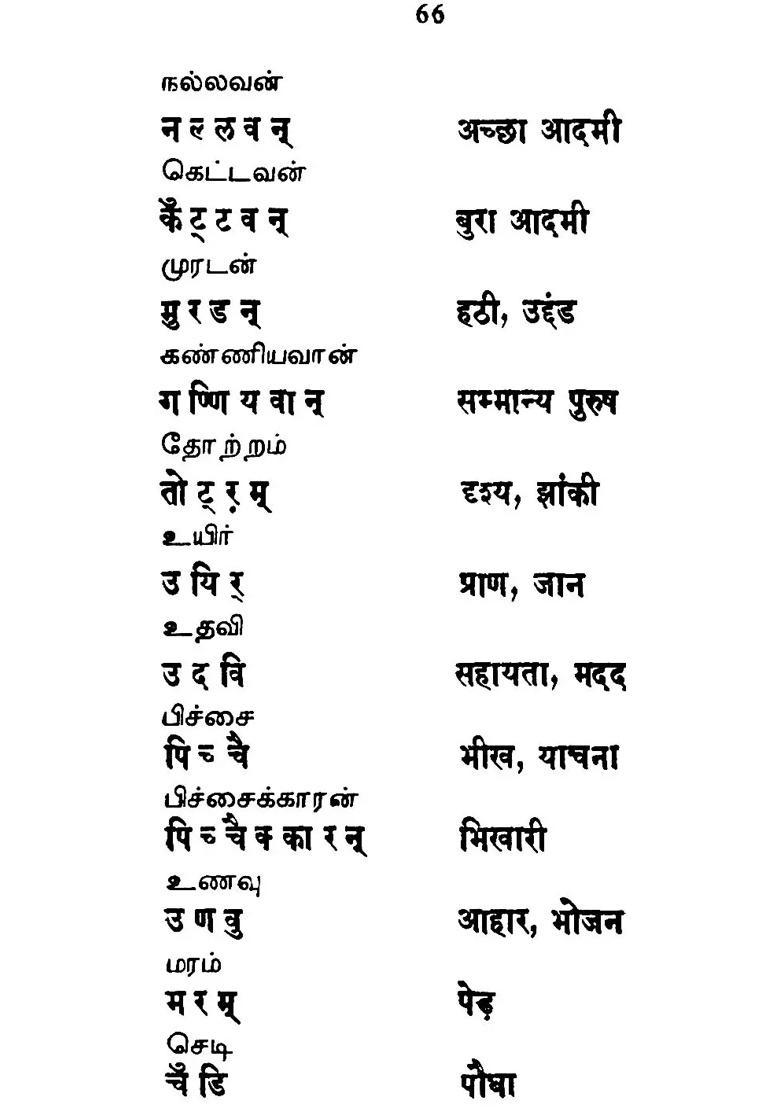 66
நல்லவன்
न ल्ल व न् अच्छा आदमी
கெட்டவன்
कॅें ट् ट व न् बुरा आदमी
முரடன்
मु र ड न् हठी, उद्दंड
கண்ணியவான்
ग ण्णि य वा न् सम्मान्य पुरुष
தோற்றம்
तो ट् ऱ म् दृश्य, झांकी
உயிர்
उ यि र् प्राण, जान
உதவி
उ द वि सहायता, मदद
பிச்சை
पि च्चै भीख, याचना
பிச்சைக்காரன்
पि च्चै क्का र न् भिखारी
உணவு
उ ण वु आहार, भोजन
மரம்
म र म् पेड़
செடி
चॅें डि पौधा